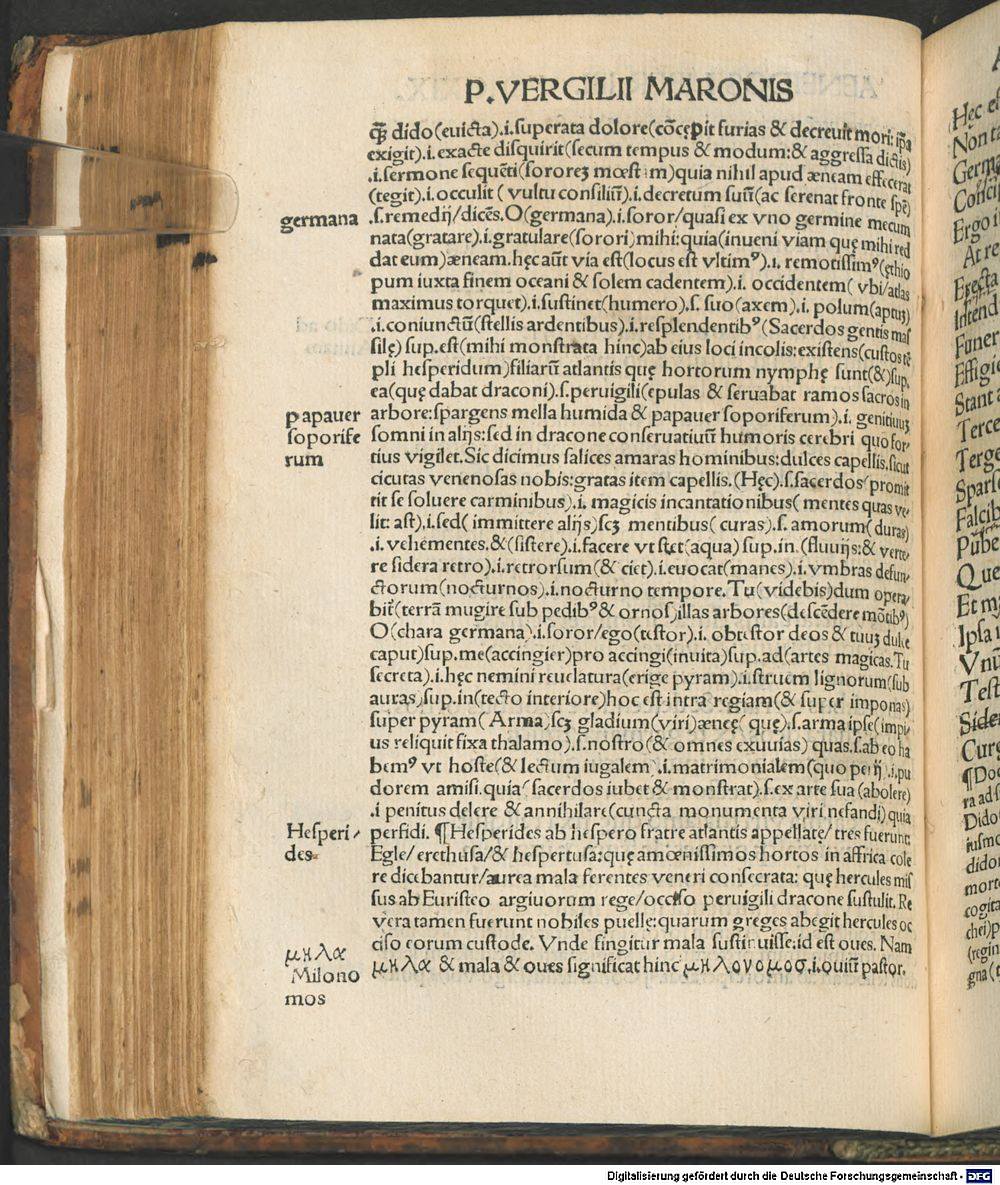 P.VERGILII MARONIS
dido(euicta).i.superata dolore(cōcępit furias & decreuit mori: ip̄a
exigit).i.exacte disquirit(secum tempus & modum:& aggressa dictis)
.i.sermone sequēti(sororeʒ mœstam)quia nihil apud æneam effecerat
(tegit).i.occulit ( vultu consiliū).i.decretum suū(ac serenat fronte spē)
germana
.s.remedij/dicēs.O(germana).i.soror/quasi ex vno germine mecum
nata(gratare).i.gratulare(sorori)mihi:quia(inueni viam quę mihi red
dat eum)æneam.hęc aūt via est(locus est vltimꝰ).i. remotissimꝰ(ęthio
pum iuxta finem oceani & solem cadentem).i. occidentem( vbi/atlas
maximus torquet).i.sustinet(humero).s. suo(axem).i. polum(aptuʒ)
.i.coniunctū(stellis ardentibus).i.resplendentibꝰ(Sacerdos gentis mas
silę) sup.est(mihi monstrata hinc)ab eius loci incolis:existens(custos tē
pli hesperidum)filiarū atlantis quę hortorum nymphę sunt(&)sup.
ea(quę dabat draconi).s.peruigili(epulas & seruabat ramos sacros in
papauer
soporife
rum
arbore:spargens mella humida & papauer soporiferum).i. genitiuuʒ
somni in alijs:sed in dracone conseruatiuū humoris cerebri quo for/
tius vigilet.Sic dicimus salices amaras hominibus:dulces capellis.sicut
cicutas venenosas nobis:gratas item capellis.(Hęc).s.sacerdos(promit
tit se soluere carminibus).i. magicis incantationibus( mentes quas ve/
lit: ast).i.sed( immittere alijs)scʒ mentibus( curas).s. amorum(duras)
.i. vehementes.&(sistere).i.facere vt stet(aqua) sup.in.(fluuijs:& verte/
re sidera retro).i.retrorsum(& ciet).i.euocat(manes).i.vmbras defun/
ctorum(nocturnos).i.nocturno tempore.Tu(videbis)dum opera/
bit̄(terrā mugire sub pedibꝰ & ornos)illas arbores(descēdere mōtibꝰ)
O(chara germana).i.soror/ego(testor).i. obtestor deos & tuuʒ dulce
caput)sup.me(accingier)pro accingi(inuita)sup.ad(artes magicas.Tu
secreta).i.hęc nemini reuelatura(erige pyram).i.struem lignorum(sub
auras)sup.in(tecto interiore)hoc est intra regiam(& super imponas)
super pyram( Arma)scʒ gladium(viri)ænęę( quę).s.arma ipse(impi/
us reliquit fixa thalamo).s.nostro(& omnes exuuias) quas.s.ab eo ha
bemꝰ vt hoste(& lectum iugalem).i.matrimonialem(quo perij).i.pu
dorem amisi.quia(sacerdos iubet & monstrat).s.ex arte sua(abolere)
.i penitus delere & annihilare(cuncta monumenta viri nefandi) quia
Hesperi/
des.
perfidi. ¶Hesperides ab hespero fratre atlantis appellatę/ tres fuerunt:
Egle/ erethusa/& hespertusa:quę amœnissimos hortos in affrica cole
re dicebantur/aurea mala ferentes veneri consecrata: quę hercules mis
sus ab Euristeo argiuorum rege/occiso peruigili dracone sustulit. Re
vera tamen fuerunt nobiles puellę:quarum greges abegit hercules oc
ciso eorum custode. Vnde fingitur mala sustinuisse.id est oues. Nam
μηλα
Milono
mos
μηλα & mala & oues significat hinc μηλονομοσ.i.ouiū pastor.
Hęc
Non
Ergo i
At re
Erecta
Intend
Funer
Effigi
Stant
Terce
Terge
Spars
Falcib
Pube
Que
Et m
Ipsa
Vnū
Test
Side
Curę
¶Do
ra ad
Dido
iusmo
didon
mort
cogita
chei)p
(regin
gna(
Digitalisierung gefördert durch die Deutsche Forschungsgemeinschaft - DFG